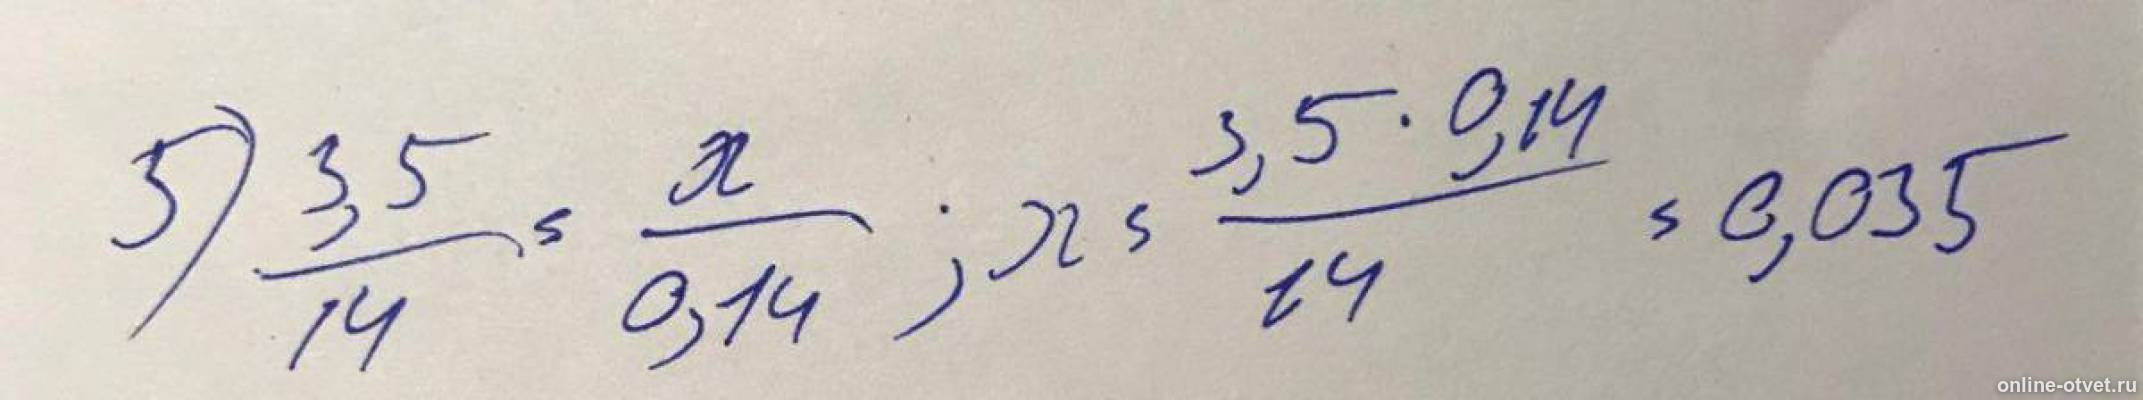 5) 3,5/14 = x/0,14 ; x = 3,5 · 0,14/14 = 0,035
online-otvet.ru